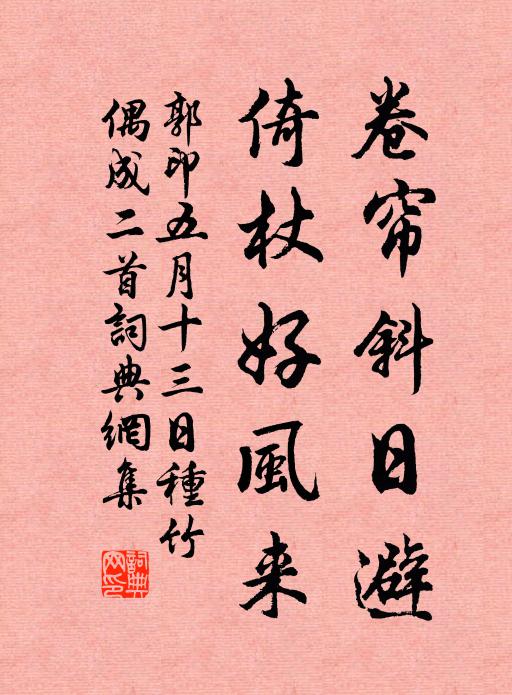 卷帘斜日避
倚杖好風来
郭印五月十三日種竹
偶成二首詞典網集
詞典
网印